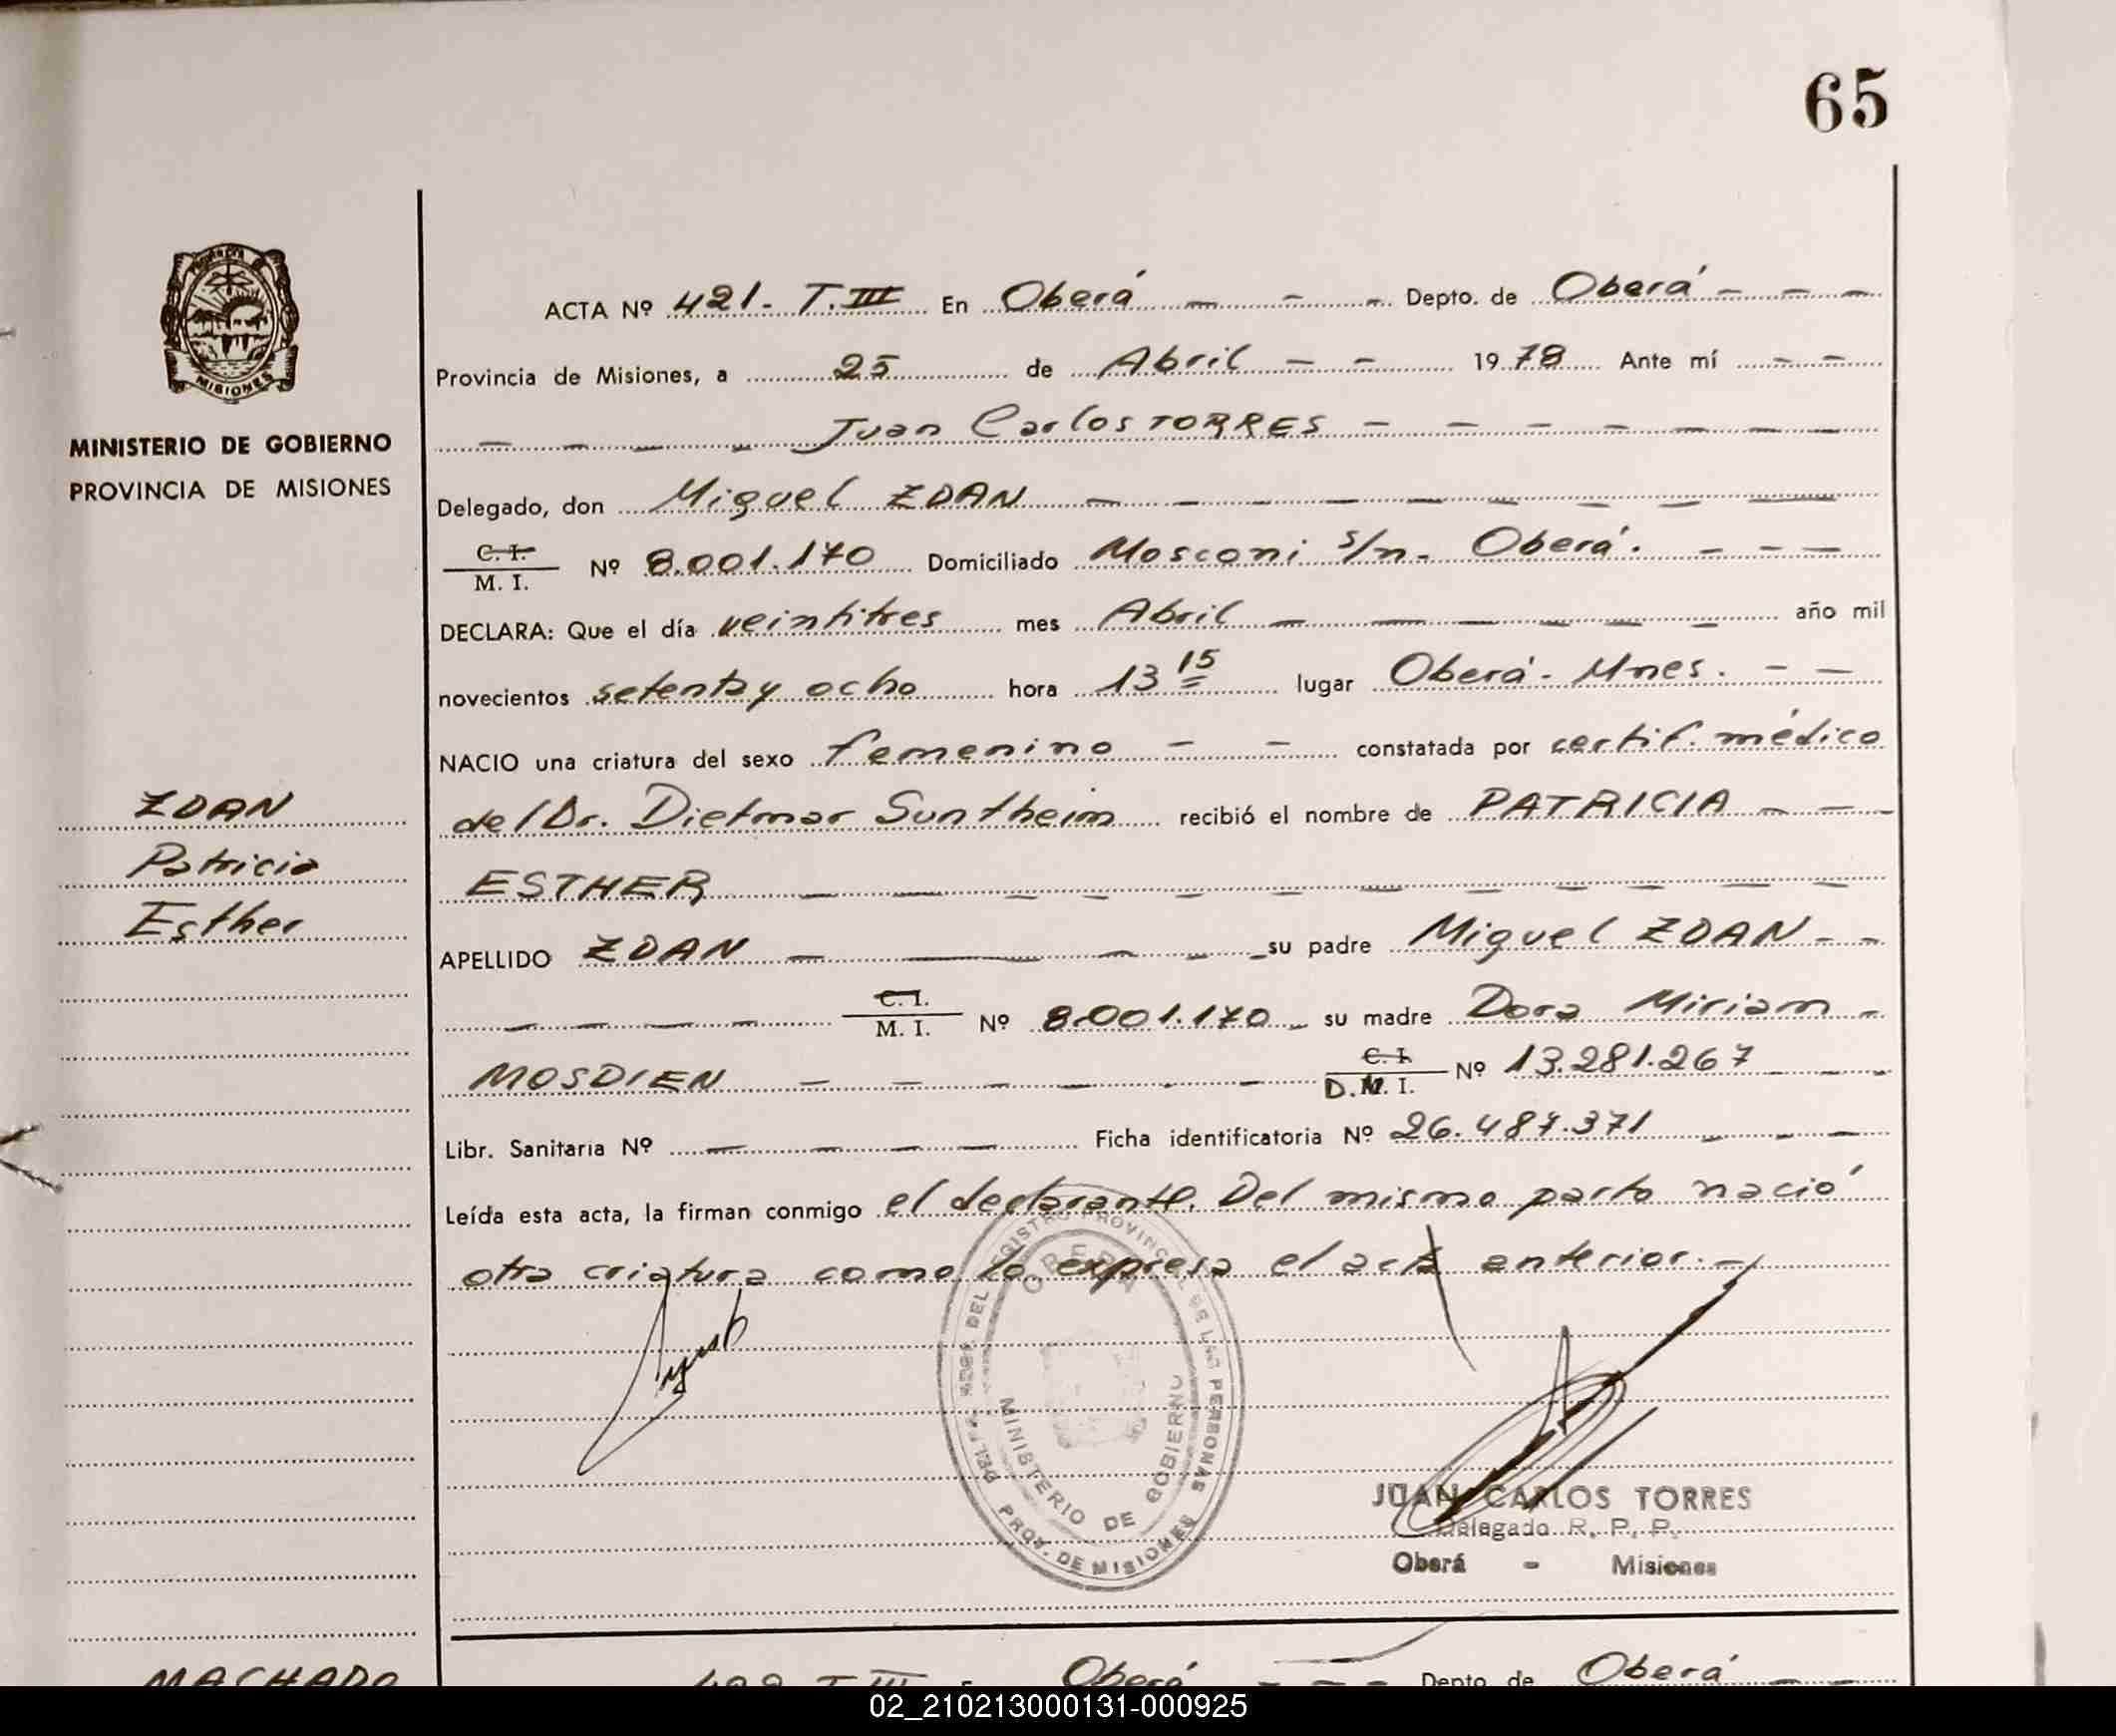 65
MISIONES
MINISTERIO DE GOBIERNO
PROVINCIA DE MISIONES
ZDAN
Patricia
Esther
ACTA Nº 421- T.III En Oberá - - - Depto. de Oberá - - -
Provincia de Misiones, a 25 de Abril - - 1978 Ante mí - -
- - - - Juan Carlos TORRES - - - - - - -
Delegado, don Miguel ZDAN - - - - - - - - -
C. I.
M. I. Nº 8.001.170 Domiciliado Mosconi s/n- Oberá. - - -
DECLARA: Que el día veintitres mes Abril - - - - - - año mil
novecientos setenta y ocho hora 13 15 lugar Oberá- Mnes. - -
NACIO una criatura del sexo femenino - - constatada por certif. médico
del Dr. Dietmar Suntheim recibió el nombre de PATRICIA - - -
ESTHER - - - - - - - - - - - -
APELLIDO ZDAN - - - - - su padre Miguel ZDAN - -
- - - - C. I.
M. I. Nº 8.001.170 - su madre Dora Miriam -
MOSDIEN - - - - - - C. I.
D.M. I. Nº 13.281.267 - - -
Libr. Sanitaria Nº - - - - Ficha identificatoria Nº 26.487.371 - - -
Leída esta acta, la firman conmigo el declarante. Del mismo parto nació
otra criatura como lo expresa el acta anterior. -
REGISTRO PROVINCIAL DE LAS PERSONAS
OBERA
MINISTERIO DE GOBIERNO
PROV. DE MISIONES
JUAN CARLOS TORRES
Delegado R. P. P.
Oberá - Misiones
MACHADO
422 T III En Oberá - - - Depto de Oberá - -
02_210213000131-000925